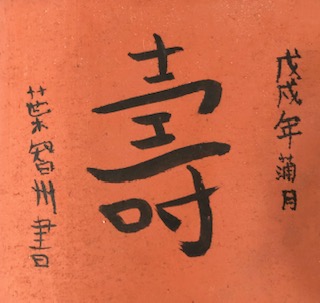 戊戌年蒲月
壽
葉智州書